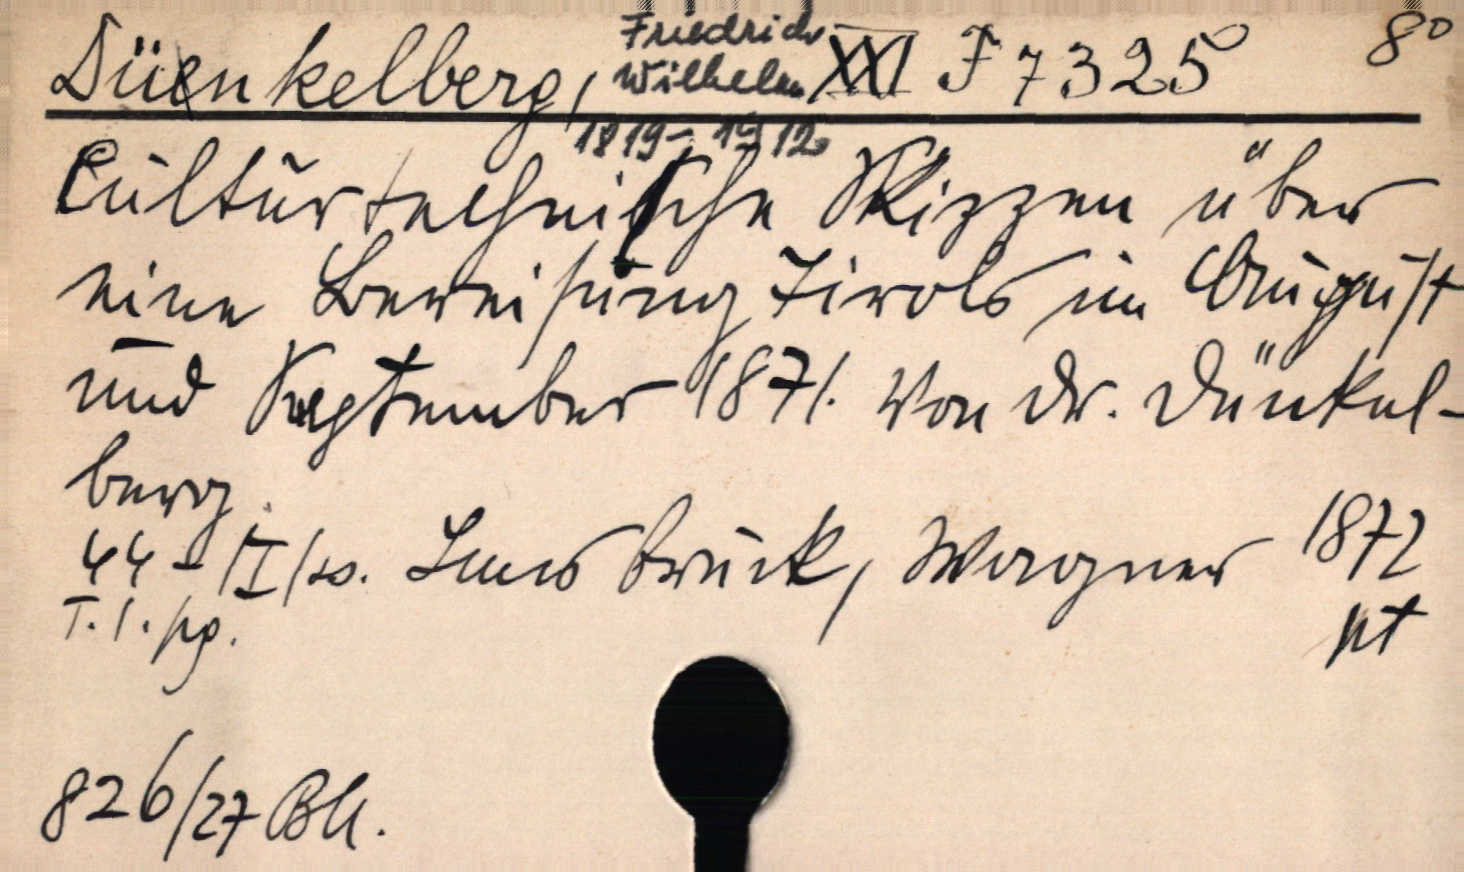 Dünkelberg, Friedrich Wilhelm XXI F 7325 8°
1819-1912.
Culturtechnische Skizzen über
eine Bereisung Tirols im August
und September 1871. Von Dr. Dünkel-
berg.
44 - /I/ Innsbruck, Wagner 1872
T. 1.
826/27